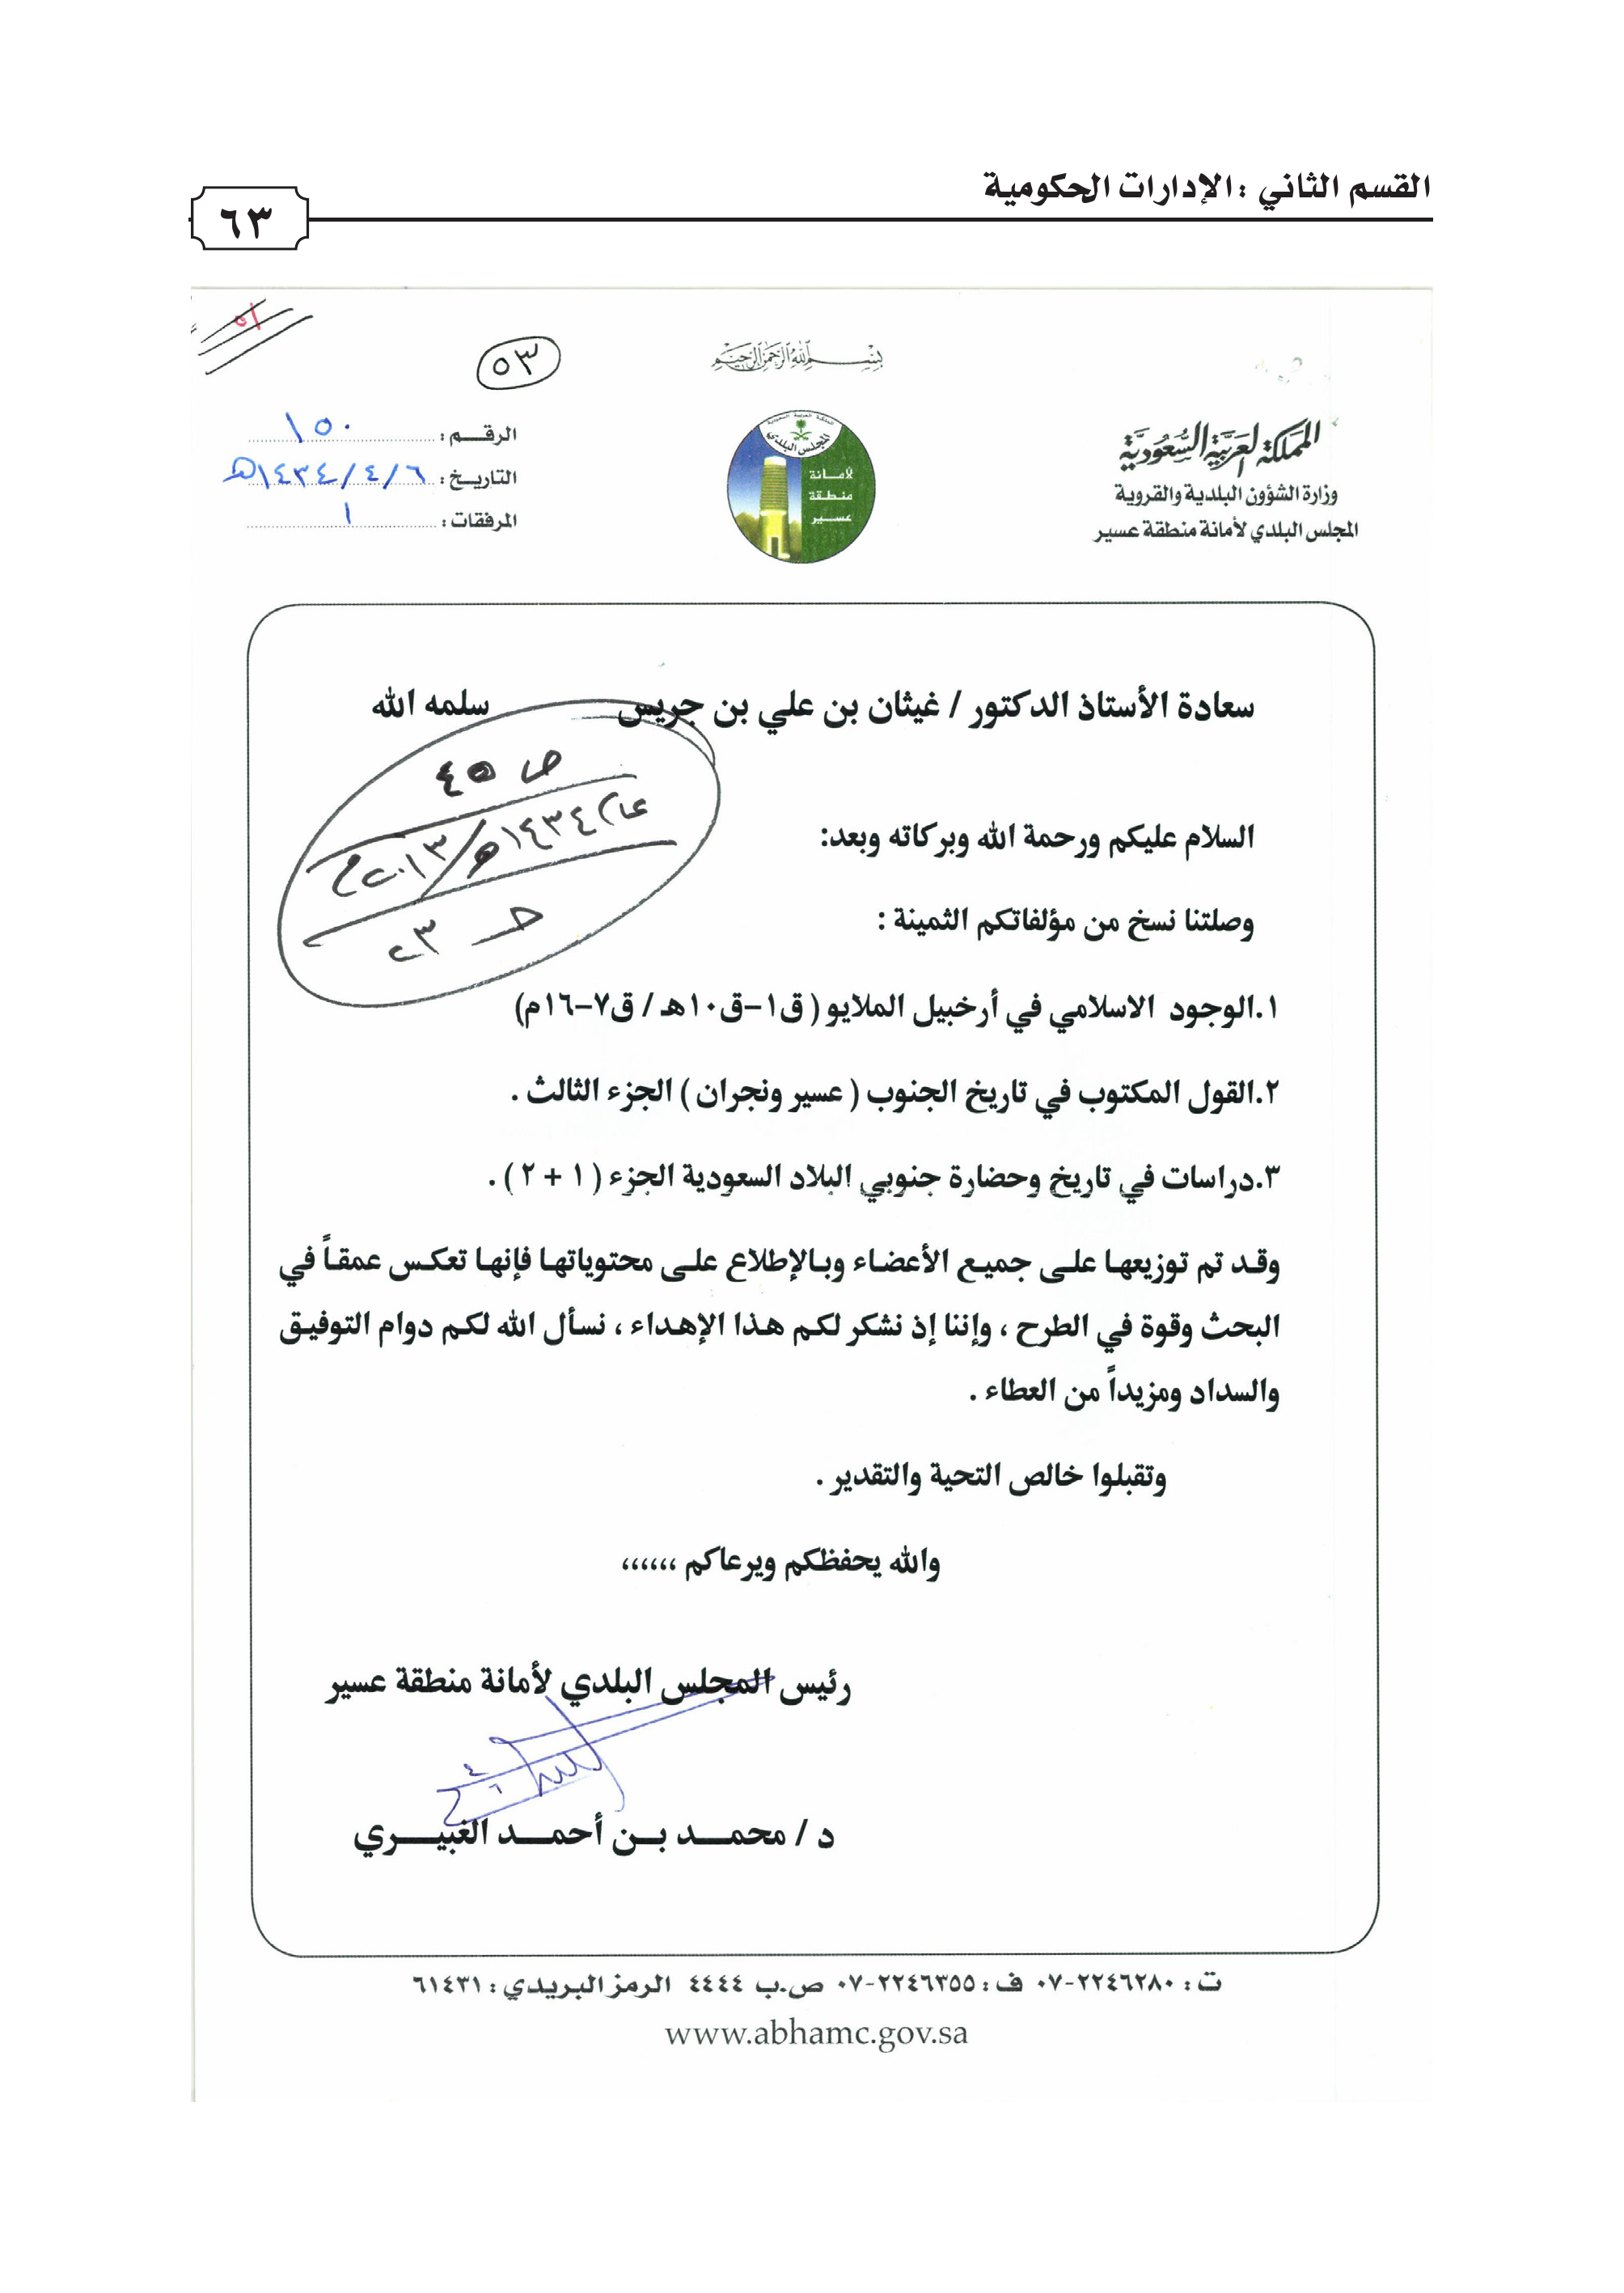 القسم الثاني : الإدارات الحكومية
٦٣
٥٣
بسم الله الرحمن الرحيم
المملكة العربية السعودية
وزارة الشؤون البلدية والقروية
المجلس البلدي لأمانة منطقة عسير
المجلس البلدي
لأمانة
منطقة
عسير
الرقم : ١٥٠
التاريخ : ١٤٣٤/٤/٦هـ
المرفقات : ١
سعادة الأستاذ الدكتور / غيثان بن علي بن جريس سلمه الله
السلام عليكم ورحمة الله وبركاته وبعد:
وصلتنا نسخ من مؤلفاتكم الثمينة :
١.الوجود الاسلامي في أرخبيل الملايو ( ق١-ق١٠هـ / ق٧-١٦م)
٢.القول المكتوب في تاريخ الجنوب ( عسير ونجران ) الجزء الثالث .
٣.دراسات في تاريخ وحضارة جنوبي البلاد السعودية الجزء ( ١ + ٢ ) .
وقد تم توزيعها على جميع الأعضاء وبالإطلاع على محتوياتها فإنها تعكس عمقاً في
البحث وقوة في الطرح ، وإننا إذ نشكر لكم هذا الإهداء ، نسأل الله لكم دوام التوفيق
والسداد ومزيداً من العطاء .
وتقبلوا خالص التحية والتقدير .
والله يحفظكم ويرعاكم ،،،،،،
رئيس المجلس البلدي لأمانة منطقة عسير
د / محمد بن أحمد الغبيري
ص ٤٥
عام ١٤٣٤هـ/٢٠١٣م
ت : ٢٢٤٦٢٨٠-٠٧ ف : ٢٢٤٦٣٥٥-٠٧ ص.ب ٤٤٤٤ الرمز البريدي : ٦١٤٣١
www.abhamc.gov.sa